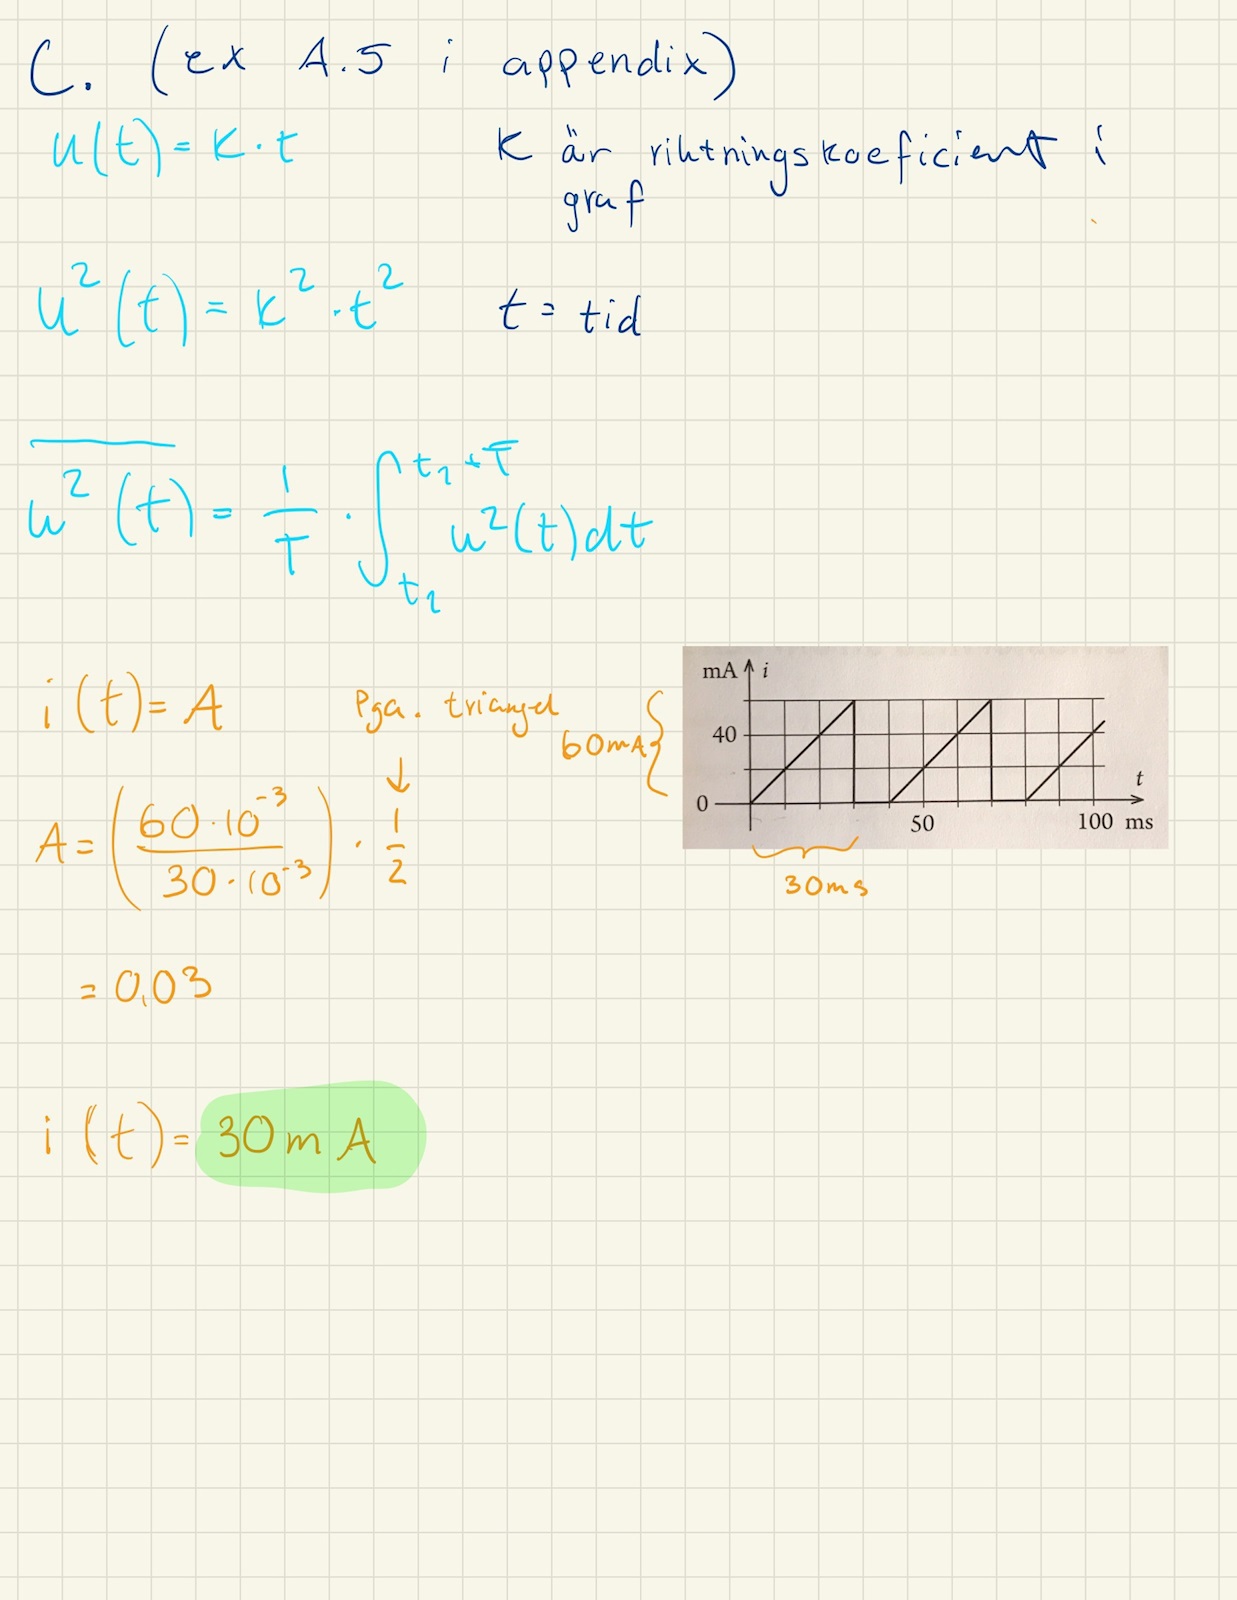 C. (ex A.5 i appendix)
u(t) = K · t
K är rihtningskoeficient i
graf
u²(t) = k² · t²
t = tid
u²(t) = 1/T · ∫ t₂ + T t₂ u²(t)dt
i(t) = A
Pga. triangel
↓
60mA
A = (60·10⁻³ / 30·10⁻³) · 1/2
= 0,03
i(t) = 30mA
mA i
40
0
50
100 ms
t
30ms